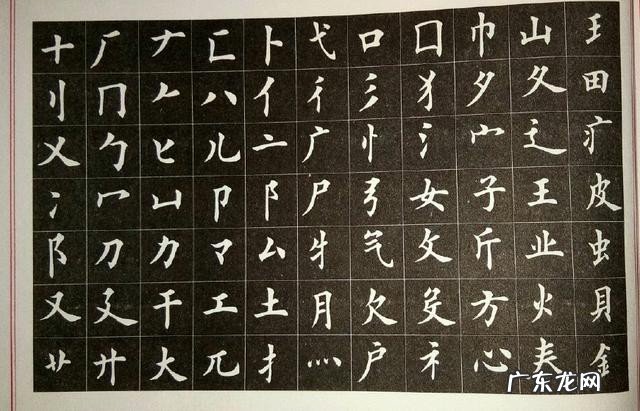 十 厂 ナ 匚 卜 弋 口 囗 巾 山 王
刂 冂 𠂉 八 亻 彳 彡 犭 夕 夂 田
乂 勹 匕 儿 亠 广 忄 氵 宀 辶 疒
冫 冖 凵 卩 阝 尸 弓 女 子 王 皮
阝 刀 力 マ 厶 牜 气 攵 斤 业 虫
又 廴 干 工 土 月 欠 殳 方 火 貝
艹 廾 大 兀 扌 灬 户 礻 心 𡗗 金
广东龙网